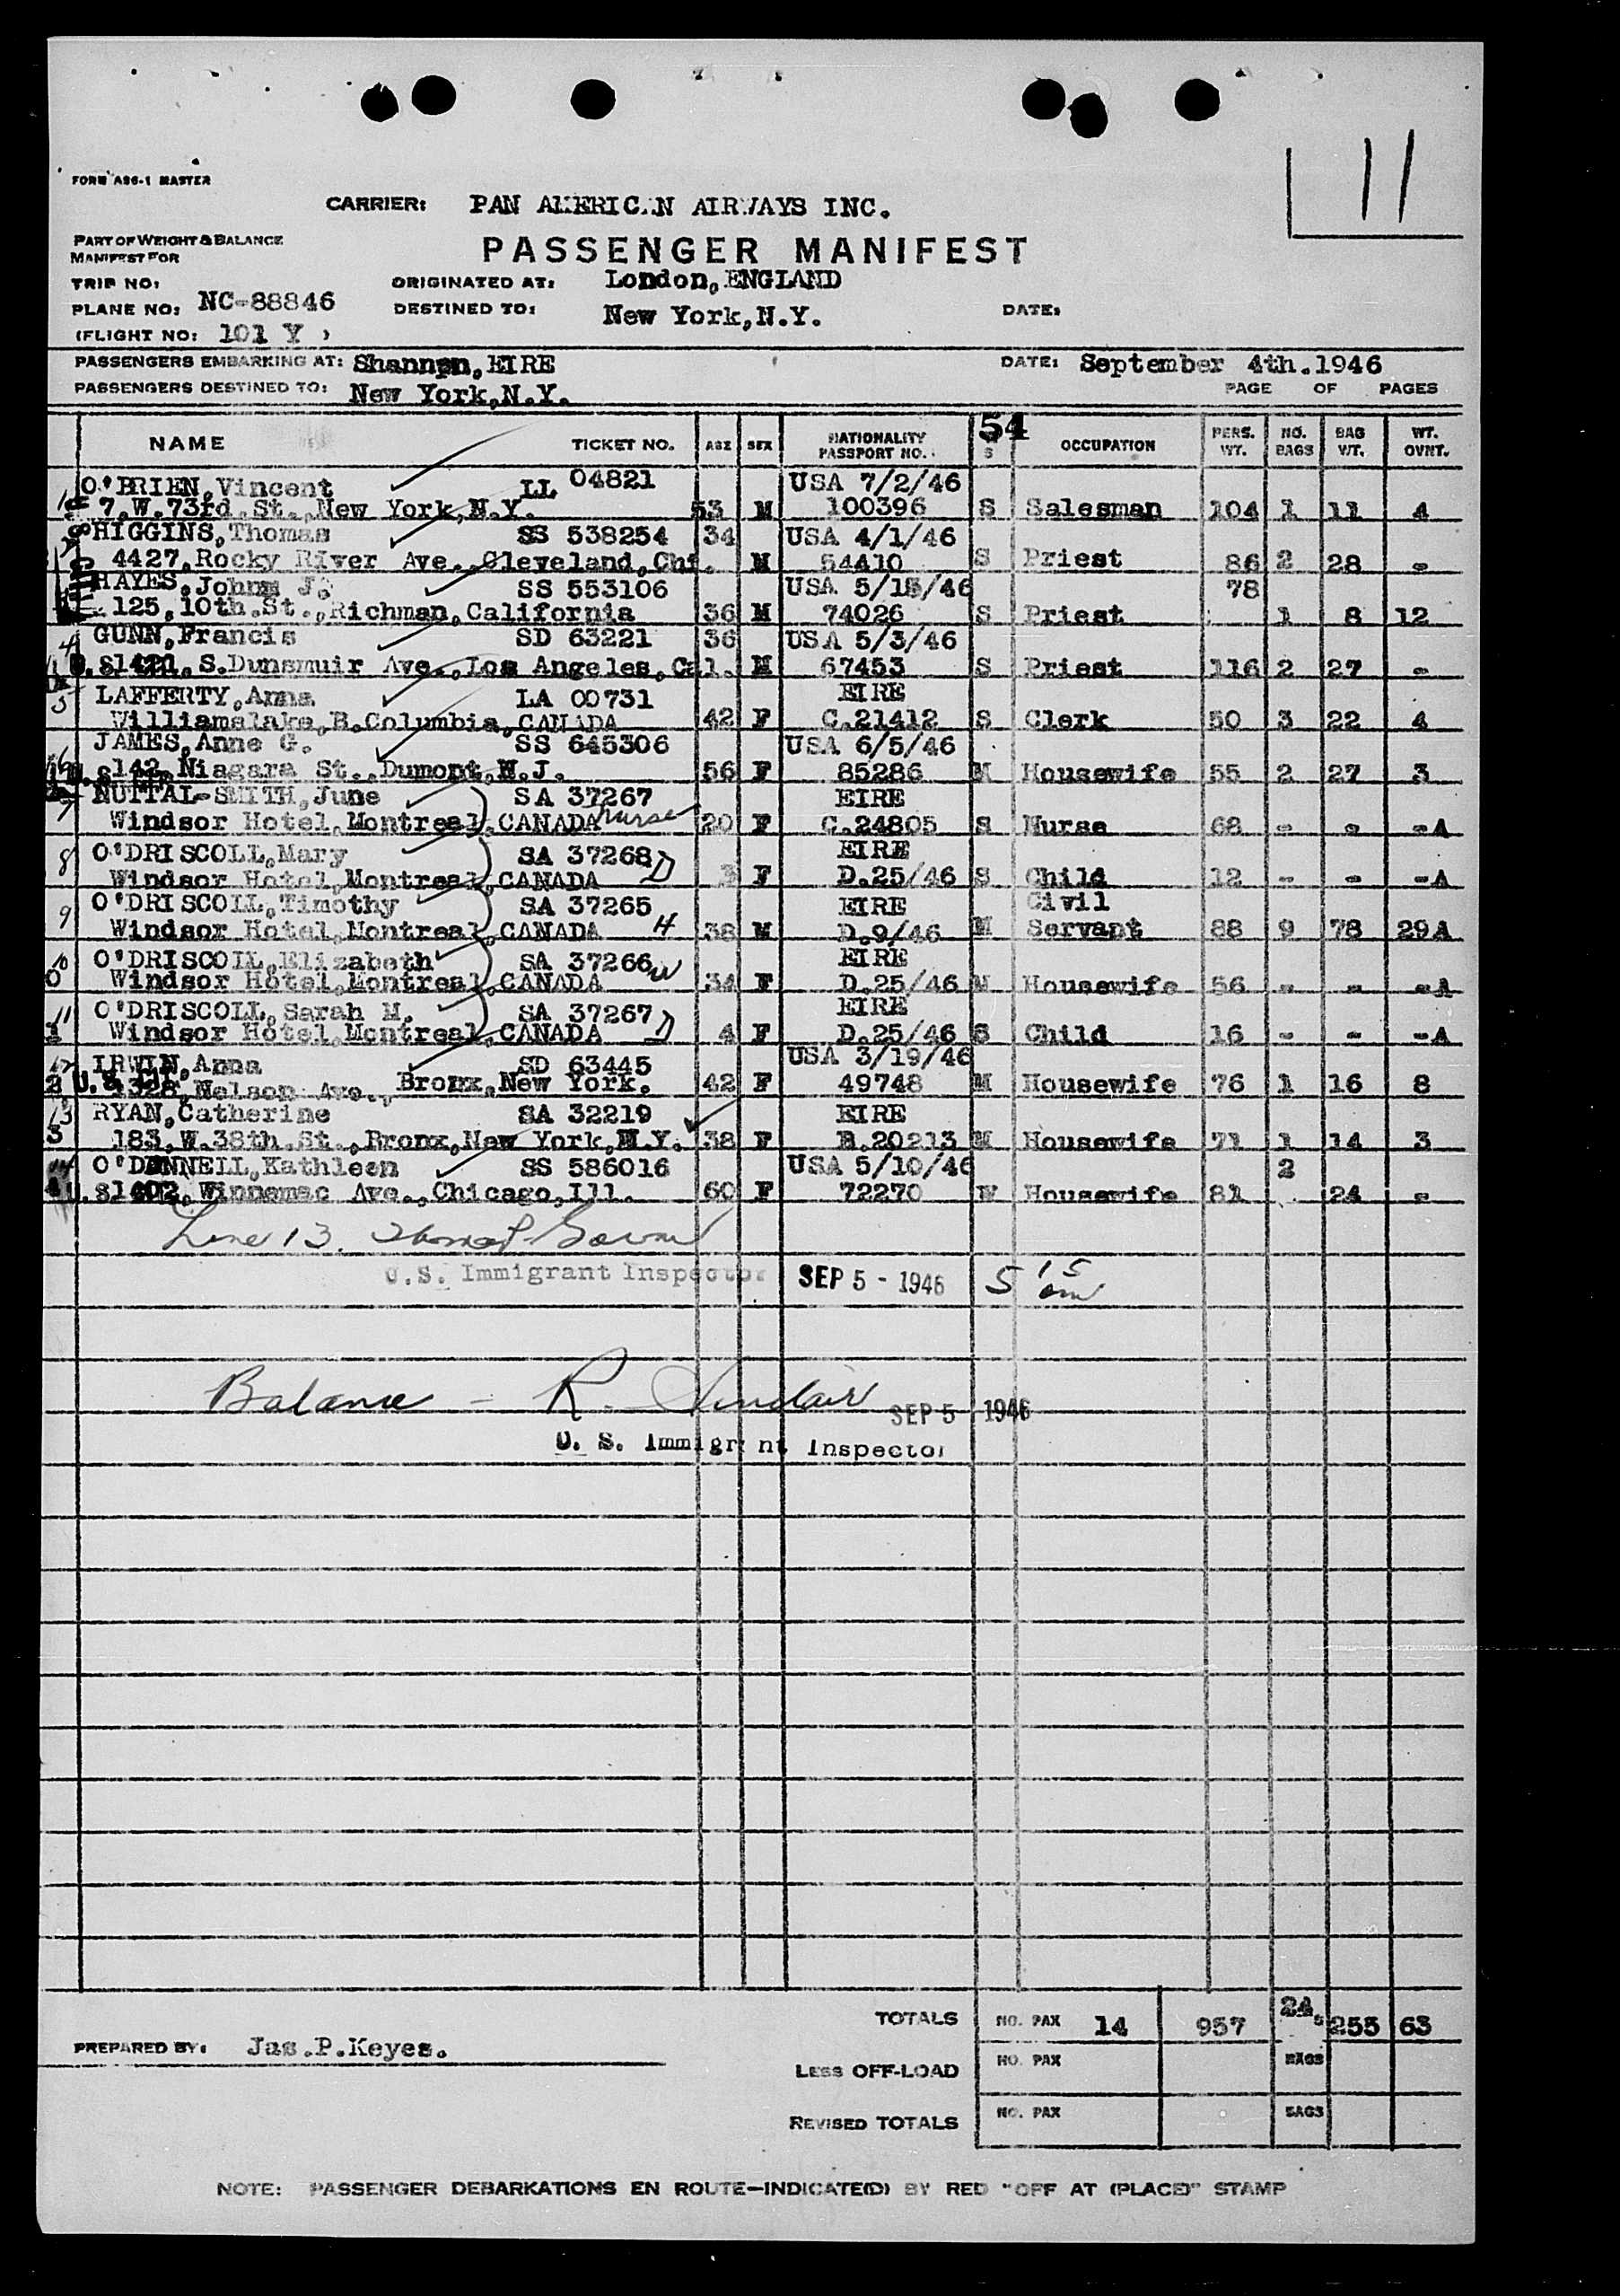 11
FORM A26-1 MASTER
CARRIER: PAN AMERICAN AIRWAYS INC.
PART OF WEIGHT & BALANCE
MANIFEST FOR
PASSENGER MANIFEST
TRIP NO: ORIGINATED AT: London, ENGLAND
PLANE NO: NC-88846 DESTINED TO: New York, N.Y. DATE:
(FLIGHT NO: 101 Y )
PASSENGERS EMBARKING AT: Shannon, EIRE DATE: September 4th. 1946
PASSENGERS DESTINED TO: New York, N.Y. PAGE OF PAGES
54
NAME TICKET NO. AGE SEX NATIONALITY PASSPORT NO. S OCCUPATION PERS. WT. NO. BAGS BAG WT. WT. OVNT.
O'BRIEN, Vincent LL 04821 USA 7/2/46
7, W. 73rd. St., New York, N.Y. 53 M 100396 S Salesman 104 1 11 4
HIGGINS, Thomas SS 538254 34 USA 4/1/46
4427, Rocky River Ave., Cleveland, M 54410 S Priest 86 2 28 -
HAYES, Johnm J. SS 553106 USA 5/15/46 78
125, 10th. St., Richman, California 36 M 74026 S Priest 1 8 12
4 GUNN, Francis SD 63221 36 USA 5/3/46
1421, S. Dunsmuir Ave., Los Angeles, Cal. M 67453 S Priest 116 2 27 -
5 LAFFERTY, Anna LA 00731 EIRE
Williamslake, B. Columbia, CANADA 42 F C.21412 S Clerk 50 3 22 4
6 JAMES, Anne G. SS 645306 USA 6/5/46
142, Niagara St., Dumont, N.J. 56 F 85286 M Housewife 55 2 27 3
7 NUTTAL-SMITH, June SA 37267 EIRE
Windsor Hotel, Montreal, CANADA nurse 20 F C.24805 S Nurse 68 - - -A
8 O'DRISCOLL, Mary SA 37268 EIRE
Windsor Hotel, Montreal, CANADA D 3 F D.25/46 S Child 12 - - -A
9 O'DRISCOLL, Timothy SA 37265 EIRE Civil
Windsor Hotel, Montreal, CANADA H 38 M D.9/46 M Servant 88 9 78 29A
10 O'DRISCOLL, Elizabeth SA 37266 W EIRE
Windsor Hotel, Montreal, CANADA 34 F D.25/46 M Housewife 56 - - -A
11 O'DRISCOLL, Sarah M. SA 37267 EIRE
Windsor Hotel, Montreal, CANADA D 4 F D.25/46 S Child 16 - - -A
12 IRWIN, Anna SD 63445 USA 3/19/46
1328, Nelson Ave., Bronx, New York. 42 F 49748 M Housewife 76 1 16 8
13 RYAN, Catherine SA 32219 EIRE
3 183, W. 38th. St., Bronx, New York, N.Y. 38 F B.20213 M Housewife 71 1 14 3
14 O'DONNELL, Kathleen SS 586016 USA 5/10/46 2
1402, Winnemac Ave., Chicago, Ill. 60 F 72270 W Housewife 81 24 -
Line 13.
U.S. Immigrant Inspector SEP 5 - 1946 5 15 am
Balance - R. Sinclair SEP 5 1946
U. S. Immigrant Inspector
TOTALS NO. PAX 14 957 24 255 63
PREPARED BY: Jas. P. Keyes.
LESS OFF-LOAD NO. PAX BAGS
REVISED TOTALS NO. PAX BAGS
NOTE: PASSENGER DEBARKATIONS EN ROUTE—INDICATE(D) BY RED "OFF AT (PLACE)" STAMP